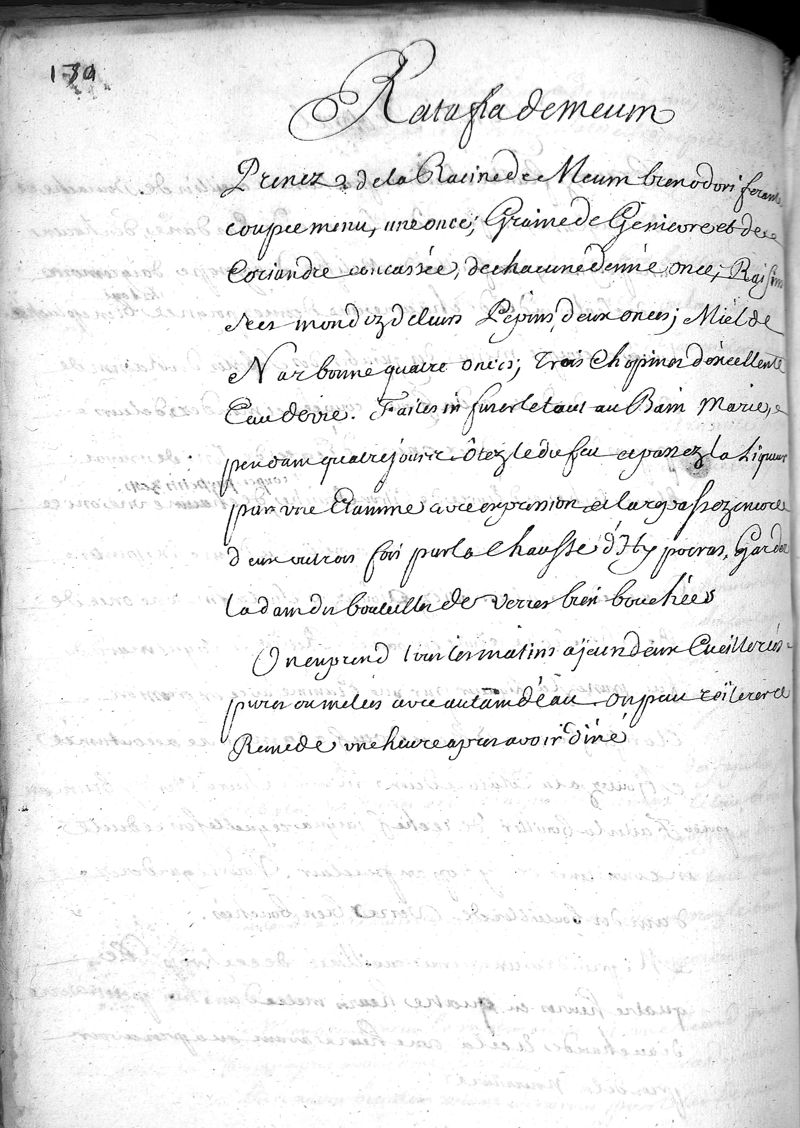 134
Ratafia de meum
Prenez de la Racine de Meum bien odoriferante
coupee menu, une once; Graine de Genievre et de
Coriandre concassée, de chacune demie once; Raisins
secs mondez de leurs Pepins, deux onces; Miel de
Narbonne quatre onces; trois chopines d'excellente
Eau de vie. Faites infuser le tout au Bain Marie,
pendant quatre jours. Ôtez le du feu et passez la Liqueur
par une Etamine avec expression et la repassez encore
deux ou trois fois par la chausse d'Hypocras, Gardez
la dans des bouteilles de verres bien bouchées
On en prend tous les matins a jeun deux Cueillerées
pures ou melées avec autant d'eau. On peut reïterer ce
Remede une heure apres avoir diné